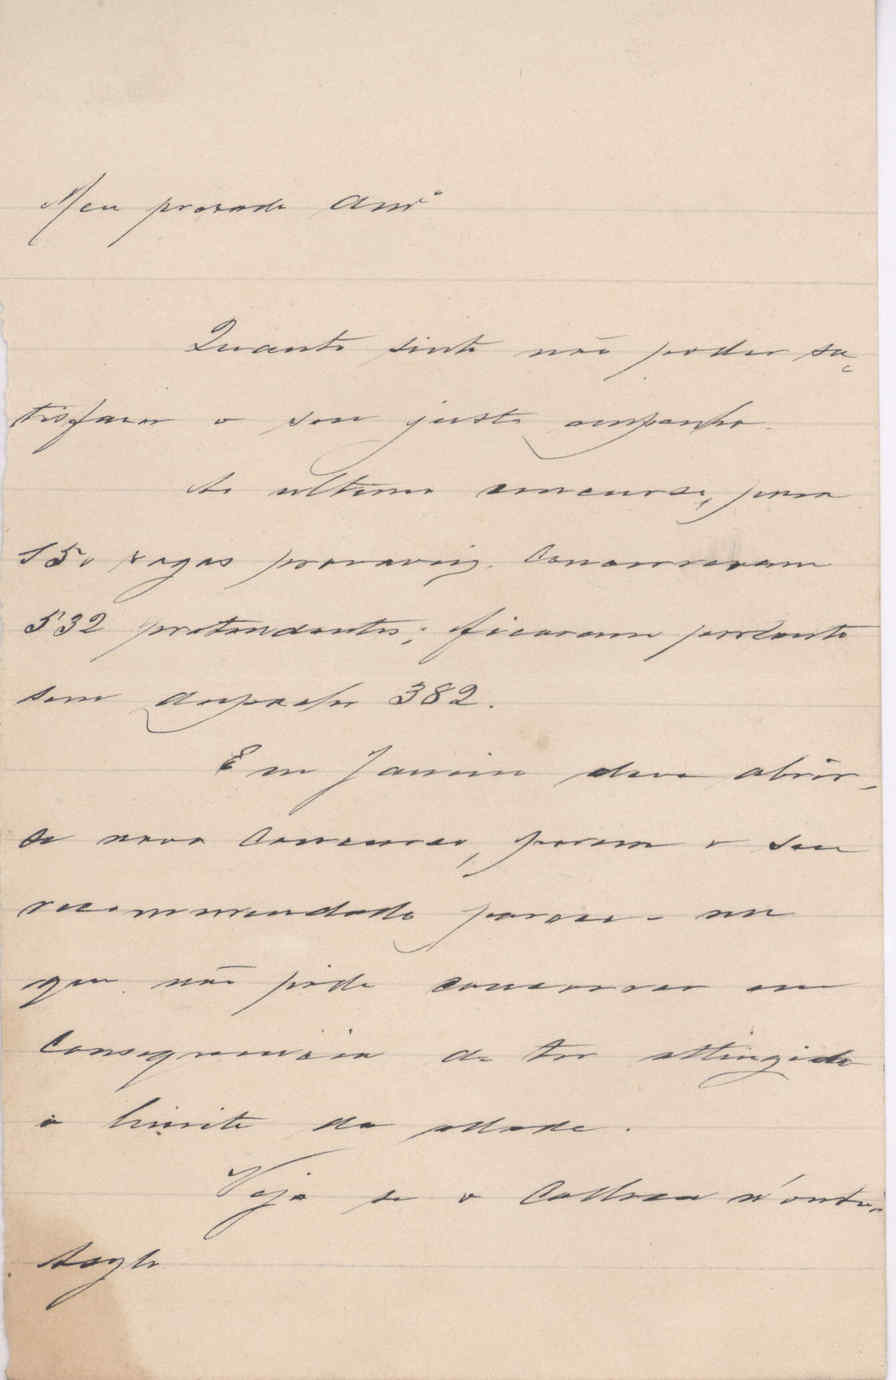 Meu prezado Am.º
Quanto sinto não poder sa-
tisfazer o seu justo empenho.
Ao ultimo concurso, para
150 vagas provaveis. Concorreram
532 pretendentes; ficaram portanto
sem despacho 382.
Em Janeiro deve abrir-
se novo concurso, porem o seu
recommendado parece-me
que não póde concorrer em
consequencia de ter attingido
o limite da edade.
Veja se o colloca n'outro